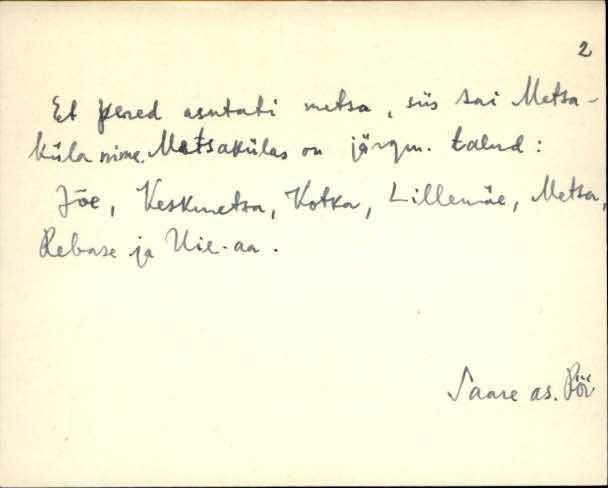 2
Et pered asutati metsa, siis sai Metsa-
küla nime. Metsakülas on järgm. talud:
Jõe, Keskmetsa, Kotka, Lillemäe, Metsa,
Rebase ja Uie-aa.
Saare as. Pöi